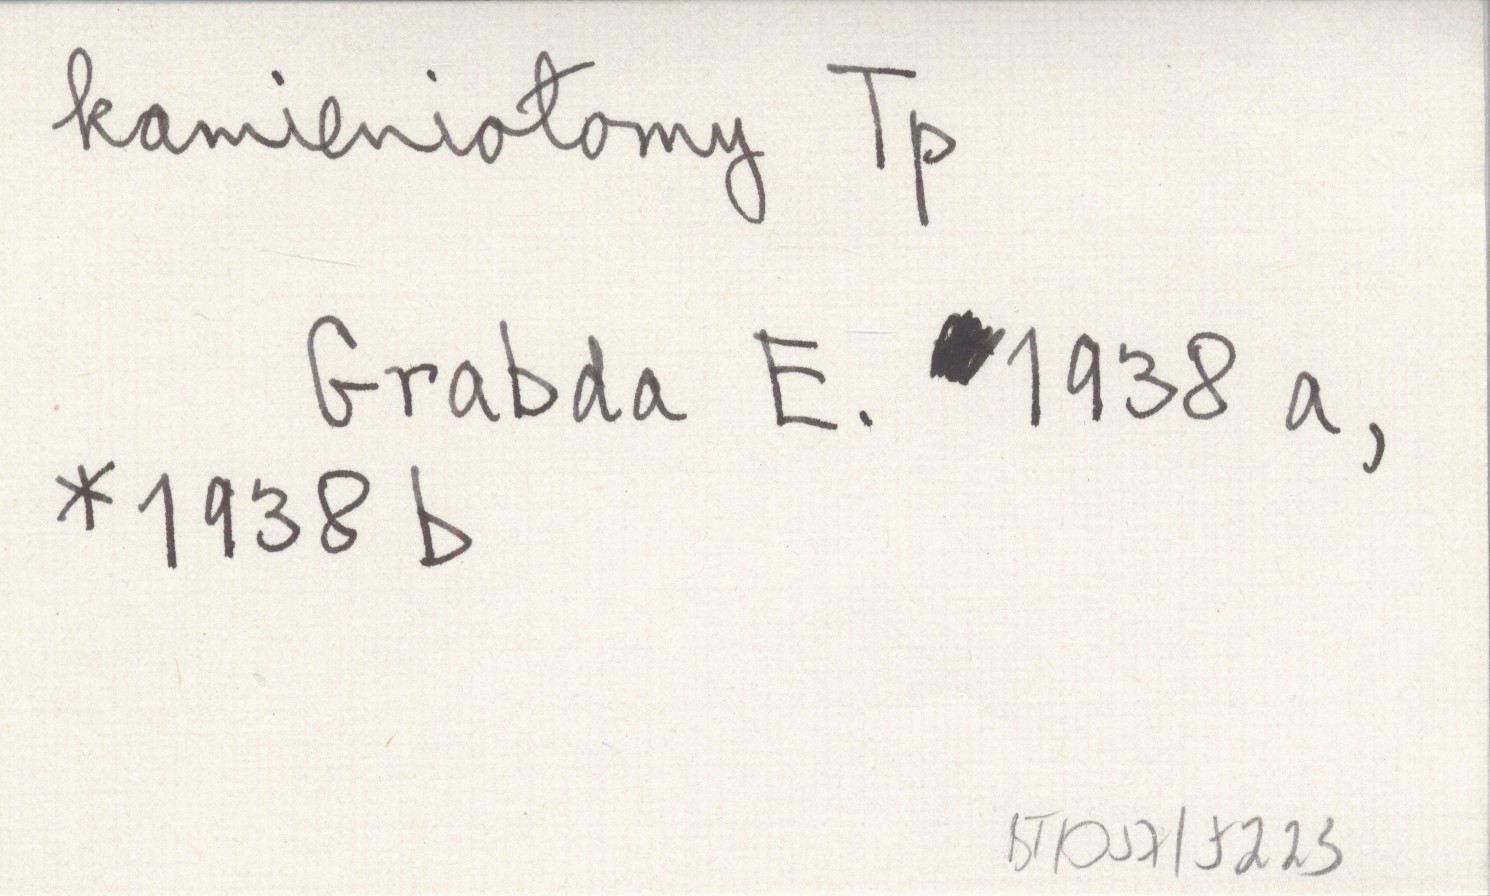 kamieniołomy Tp
Grabda E. 1938 a,
*1938 b
BT/057/5223